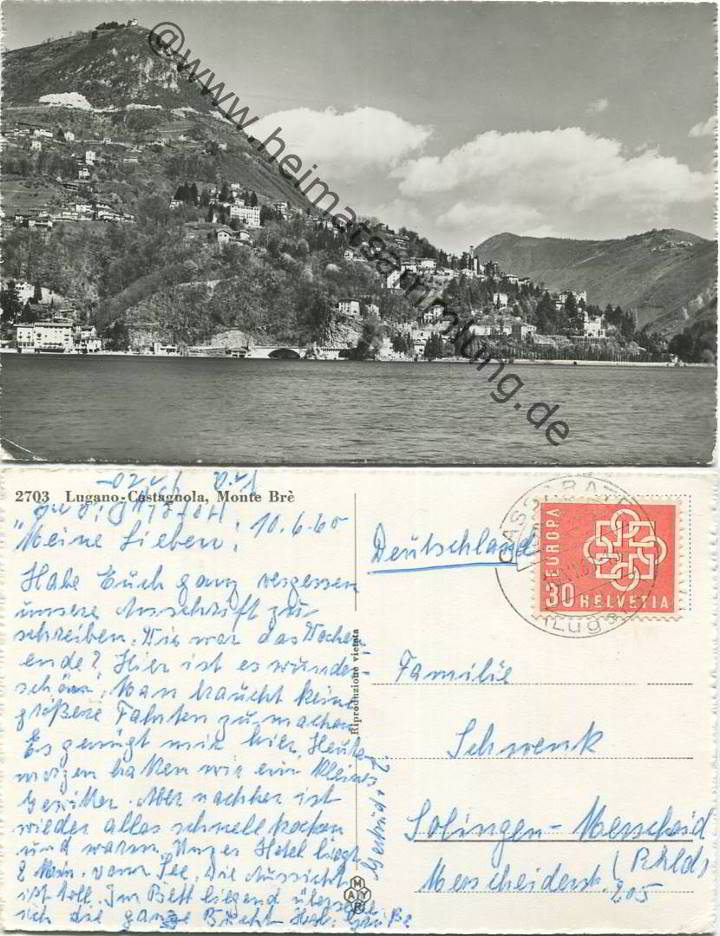 @www.heimatsammlung.de
2703 Lugano-Castagnola, Monte Brè
10.6.60
Meine Lieben!
Habe Euch ganz vergessen
unsere Anschrift zu
schreiben. Wie war das Wochen
ende? Hier ist es wunder
schön. Man braucht keine
größere Fahrten zu machen
Es genügt mir hier. Heute
morgen hatten wir ein kleines
Gewitter. Aber nachher ist
wieder alles schnell trocken
und warm. Unser Hotel liegt
2 Min. vom See. Die Aussicht
ist toll. Im Bett liegend
ich die ganze Bucht. Grüße
Riproduzione vietata
MAYR
Deutschland
EUROPA
30 HELVETIA
CASSARATE
(Lugano)
Familie
Schwenk
Solingen-Merscheid
(Rhld)
Merscheiderstr.
205